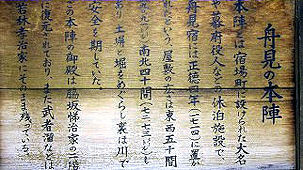 舟見の本陣
本陣とは宿場町に設けられた大名
や幕府役人などの休泊施設で、
舟見宿には正徳四年(一七一四)に置か
れたという。屋敷の広さは東西五十間
南北四十間(七二・七三m)もし
あり 土塀と堀をめぐらし裏は川で
安全を期していた。
この本陣の御殿は脇坂悌治家の二階
に復元されており、また武者溜などは
若林孝治家にそのまま残っている。